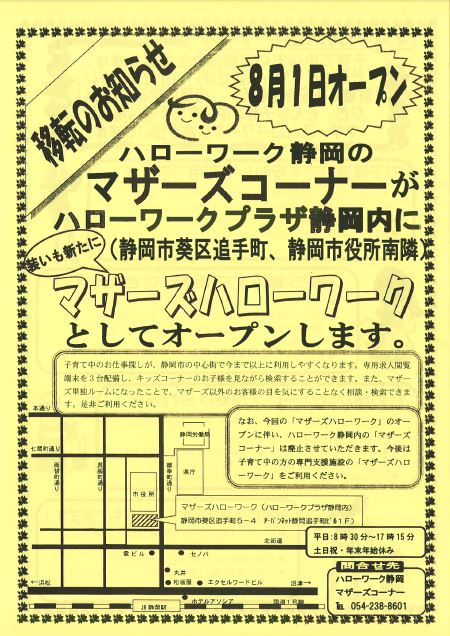 移転のお知らせ
8月1日オープン
ハローワーク静岡の
マザーズコーナーが
ハローワークプラザ静岡内に
(静岡市葵区追手町、静岡市役所南隣)
装いも新たに
マザーズハローワーク
としてオープンします。
子育て中のお仕事探しが、静岡市の中心街で今まで以上に利用しやすくなります。専用求人閲覧
端末を3台配備し、キッズコーナーのお子様を見ながら検索することができます。また、マザー
ズ単独ルームになったことで、マザーズ以外のお客様の目を気にすることなく相談・検索できま
す。是非ご利用ください。
なお、今回の「マザーズハローワーク」のオー
プンに伴い、ハローワーク静岡内の「マザーズ
コーナー」は廃止させていただきます。今後は
子育て中の方の専門支援施設の「マザーズハロ
ーワーク」をご利用ください。
本通り
七間町通り
両替町通り
呉服町通り
御幸町通り
静岡労働局
県庁
市役所
マザーズハローワーク(ハローワークプラザ静岡内)
静岡市葵区追手町5-4 アーバンネット静岡追手町ビル1F)
北街道
雷ビル
セノバ
丸井
松坂屋
エクセルワードビル
ホテルアソシア
←浜松
沼津→
JR静岡駅
国道1号線
平日:8時30分~17時15分
土日祝・年末年始休み
問合せ先
ハローワーク静岡
マザーズコーナー
℡ 054-238-8601